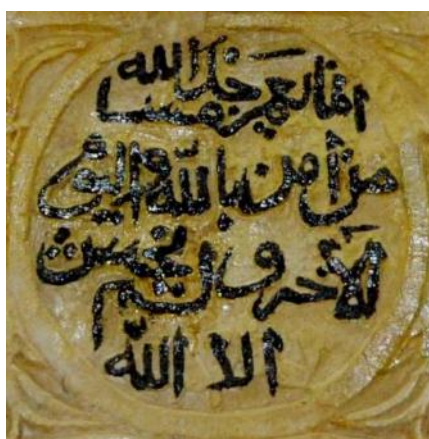 انما يعمر مساجد الله
من أمن بالله واليوم
الأخر ولم يخش
الا الله